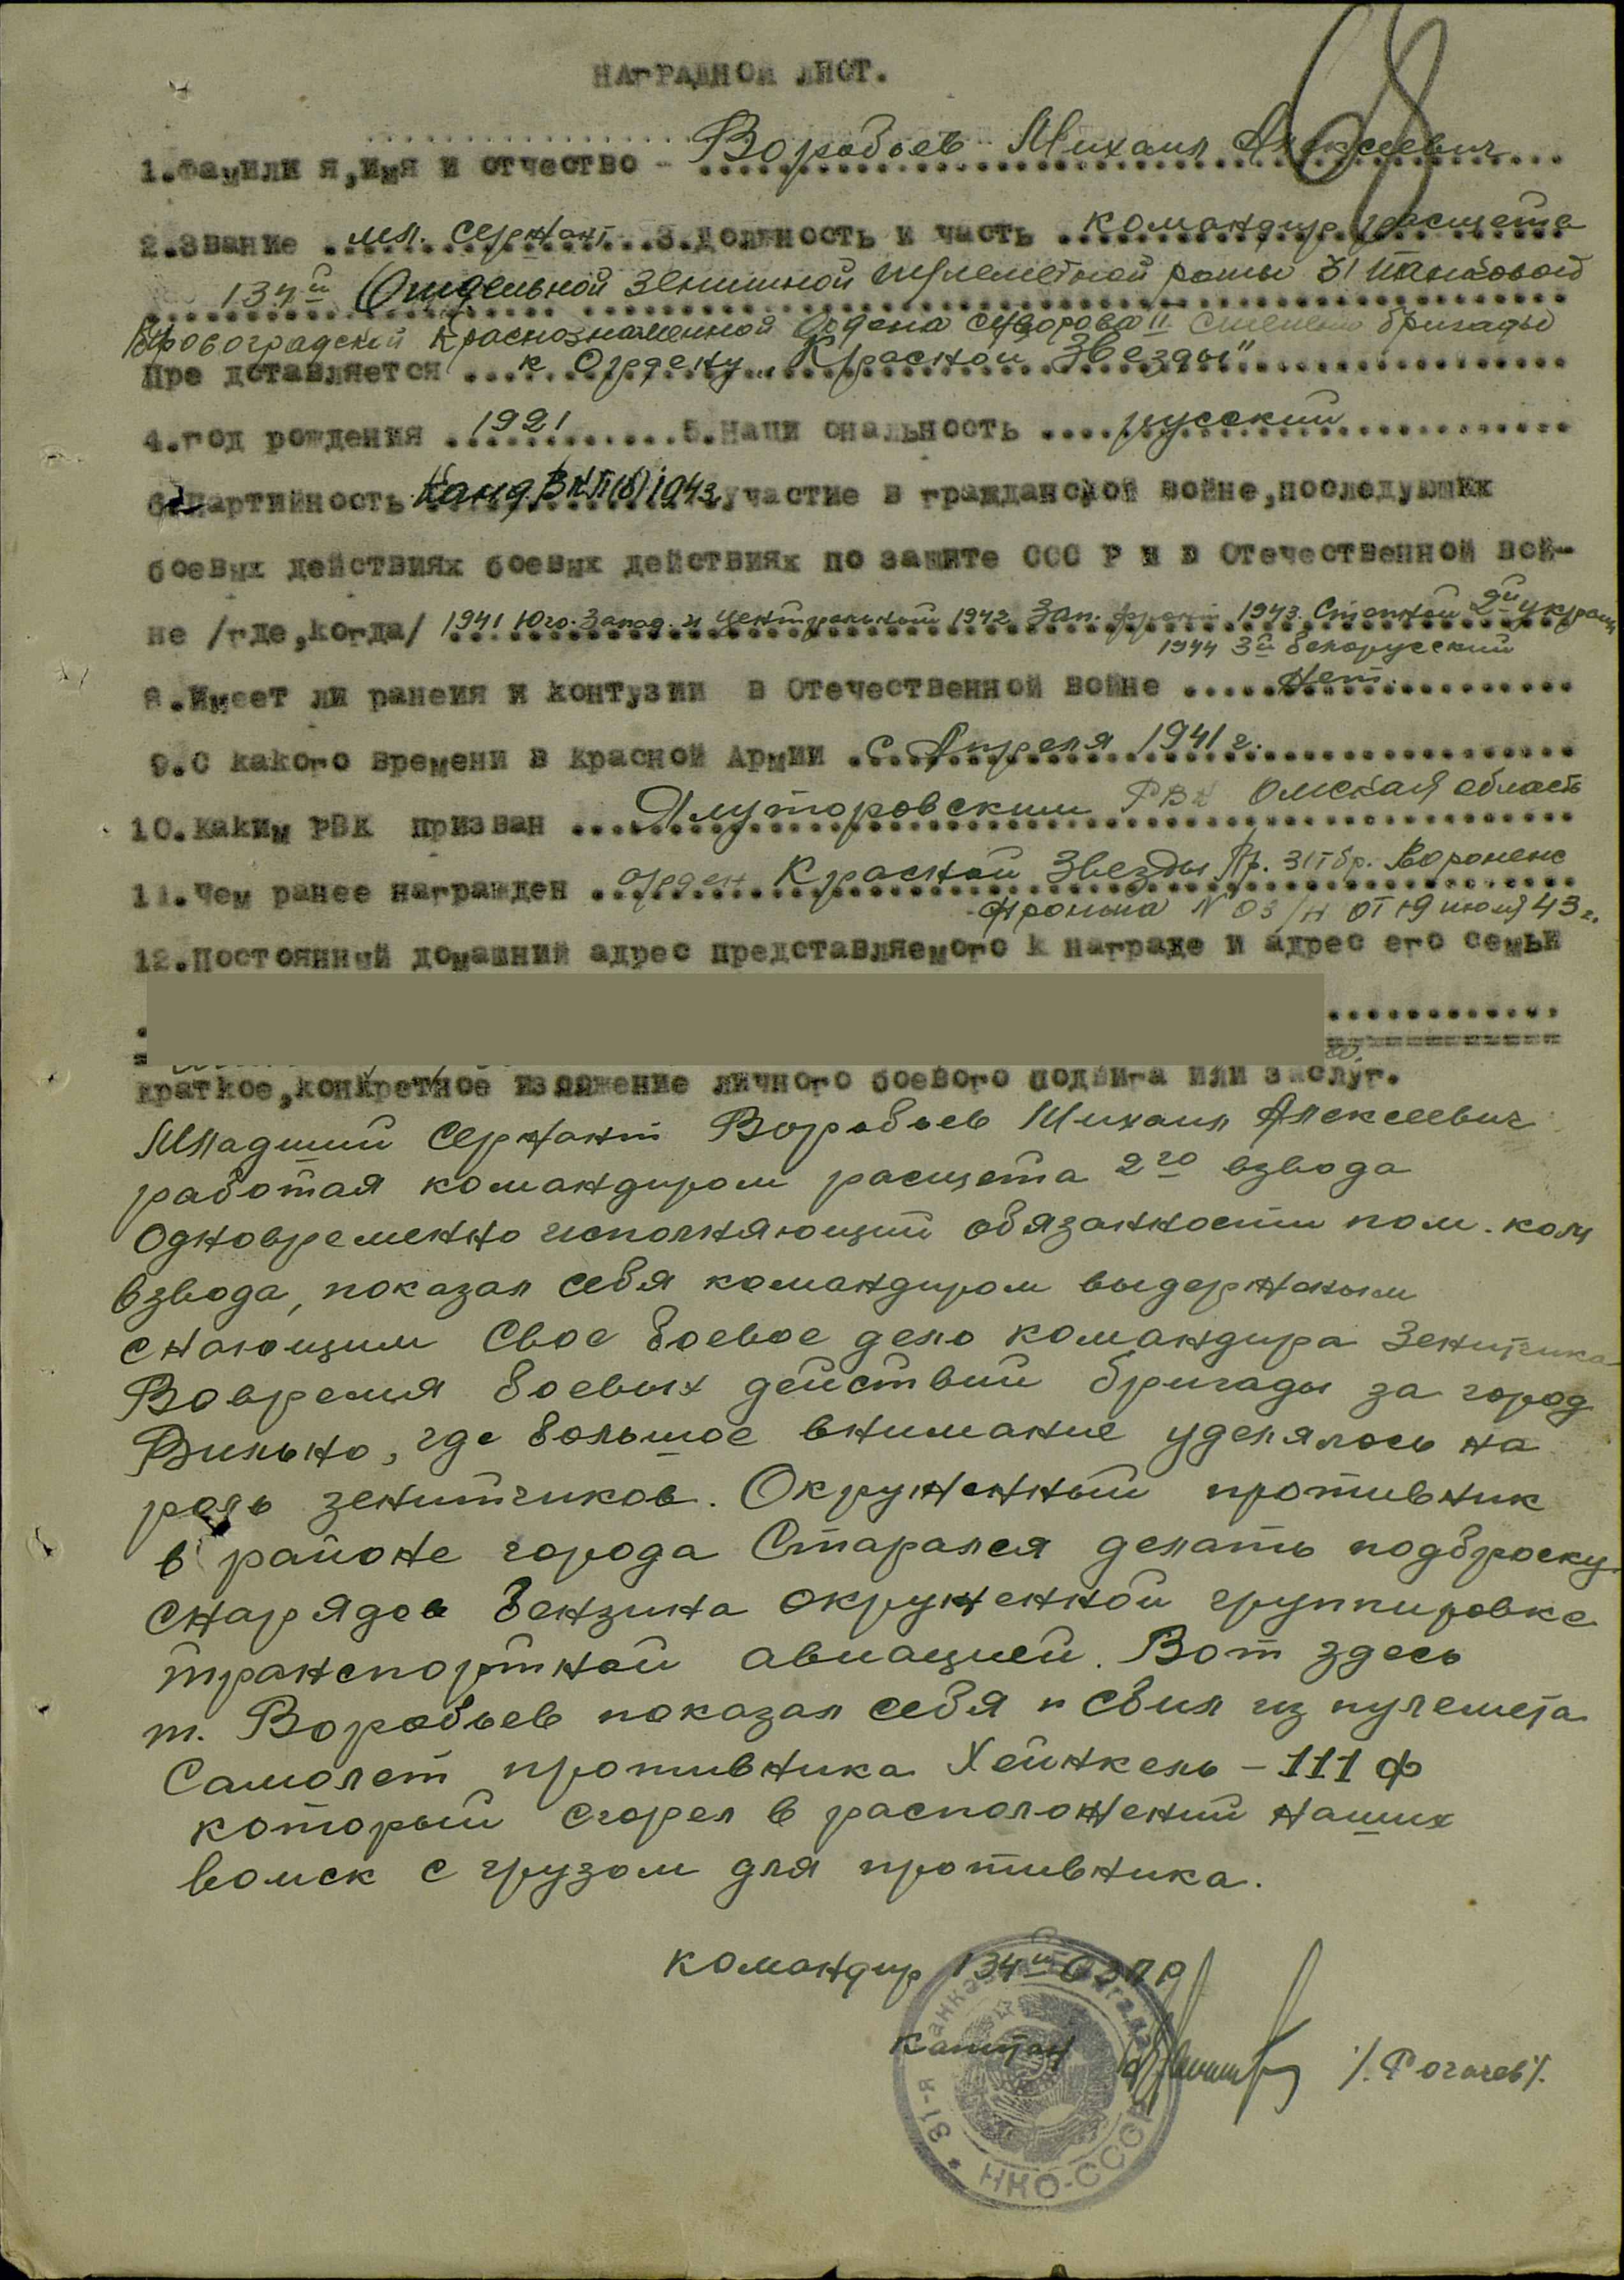 68
НАГРАДНОЙ ЛИСТ.
1.Фамили я,имя и отчество - Воробьев Михаил Алексеевич
2.Звание мл. сержант 3.должность и часть командир расщета
134й Отдельной Зенитной пулеметной роты 31 танковой
Кировоградской Краснознаменной Ордена Суворова II степени бригады
Пре дставляется к Ордену „Красной Звезды"
4.год рождения 1921 5.Наци ональность русский
6.Партийность Канд. ВКП(б) 1943 участие в гражданской войне,последующих
боевых действиях боевых действиях по защите ССС Р и в Отечественной вой-
не /где,когда/ 1941 Юго-Запад. и Центральный 1942 Зап. фронт 1943 Степной 2й украин
1944 3й белорусский
8.Имеет ли ранеия и контузии в Отечественной войне Нет.
9.С какого времени в красной Армии с Апреля 1941 г.
10.каким РВК призван Ялуторовским РВК Омская область
11.Чем ранее награжден орден Красной Звезды Пр. 31тбр. Воронежс
фронта N 03/н от 19 июля 43 г.
12.Постоянный домашний адрес представляемого к награде и адрес его семьи
краткое,конкретное изложение личного боевого подвига или заслуг.
Младший Сержант Воробьев Михаил Алексеевич
работая командиром расщета 2го взвода
одновременно исполняющий обязанности пом. ком
взвода, показал себя командиром выдержаным
снающим свое боевое дело командира Зенитчика
Вовремя боевых действий бригады за город
Вильно, где большое внимание уделялось на
роль зенитчиков. Окруженный противник
в районе города Старался делать подброску
снарядов бензина окруженной группировке
транспортной авиацией. Вот здесь
т. Воробьев показал себя и сбил из пулемета
Самолет противника Хейнкель - 111 ф
который сгорел в расположений наших
войск с грузом для противника.
командир 134й ОЗПР
капитан /.Рогачев/.
31-я танковая бригада
* НКО-СССР